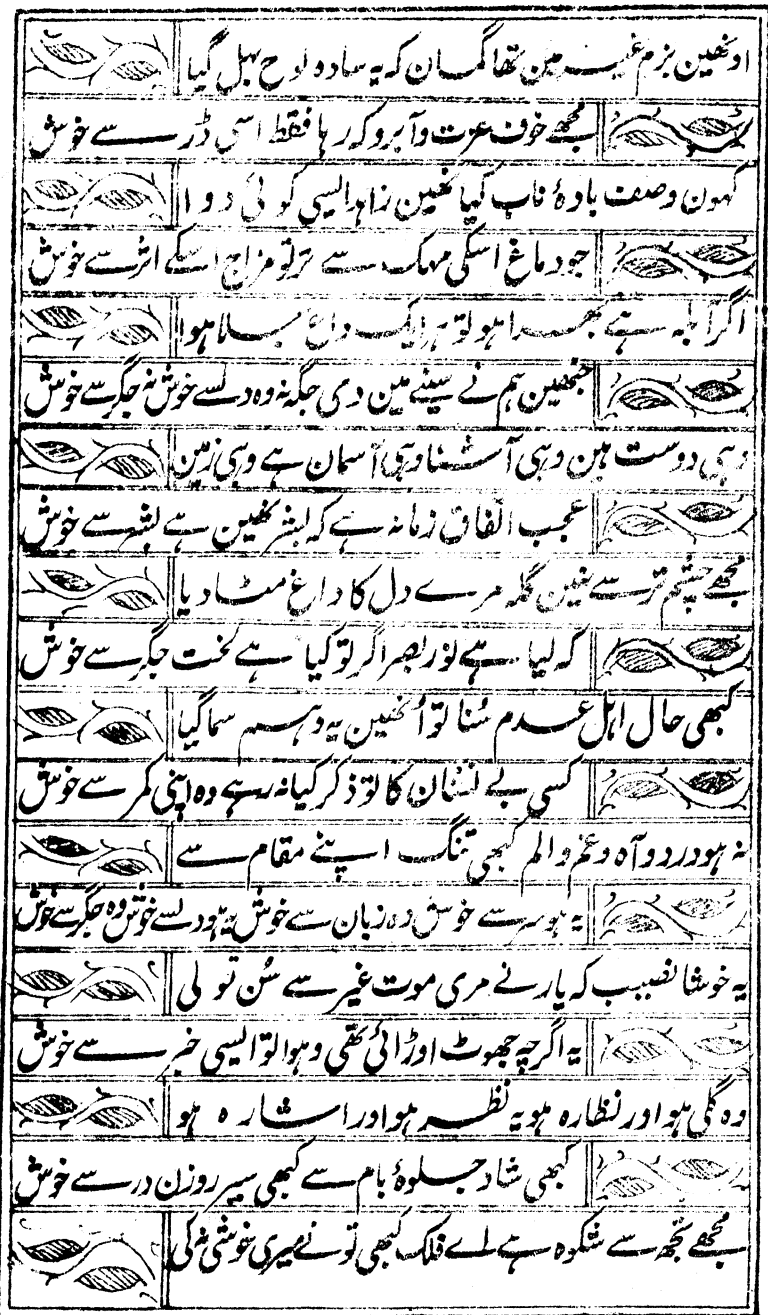 اونھین بزم غیر مین تھا گمان کہ یہ سادہ لوح بہل گیا
مجھے خوف عزت و آبرو کہ رہا فقط اسی ڈر سے خوش
کہون وصف بادۂ ناب کیا نھین زاہد ایسی کوئی دوا
جو دماغ اسکی مہک سے تر تو مزاج اسکے اثر سے خوش
اگر آبلہ ہے بھرا ہوا تو ہر ایک داغ جلا ہوا
جنھین ہم نے سینے مین دی جگہ نہ وہ دلسے خوش نہ جگر سے خوش
وہی دوست ہین وہی آشنا وہی آسمان ہے وہی زمین
عجب اتفاق زمانہ ہے کہ بشر نھین ہے بشر سے خوش
مجھے چشم تر سے نہین گلہ مرے دل کا داغ مٹا دیا
کہ لیا ہے نور بصر اگر تو کیا ہے لخت جگر سے خوش
کبھی حال اہل عدم سُنا تو اُنھین یہ وہم سما گیا
کسی بے نشان کا تو ذکر کیا نہ رہے وہ اپنی کمر سے خوش
نہ ہو درد و آہ و غم و الم کبھی تنگ اپنے مقام سے
یہ ہو سر سے خوش وہ زبان سے خوش یہ ہو دلسے خوش وہ جگر سے خوش
یہ خوشا نصیب کہ یار نے مری موت غیر سے سُن تو لی
یہ اگرچہ جھوٹ اوڑائی تھی وہ ہوا تو ایسی خبر سے خوش
وہ گلی ہو اور نظارہ ہو یہ نظر ہو اور اشارہ ہو
کبھی شاد جلوۂ بام سے کبھی سیر روزن در سے خوش
مجھے تجھ سے شکوہ ہے اے فلک کبھی تو نے میری خوشی نہ کی